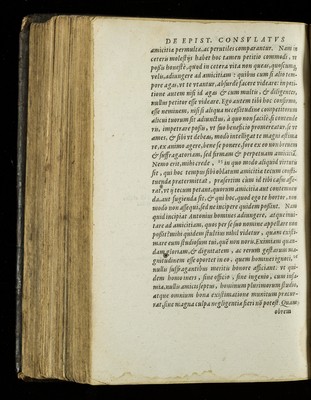 DE EPIST. CONSVLATVS
amicitiæ permultæ, ac perutiles comparantur. Nam in
ceteris molestijs habet hoc tamen petitio commodi, vt
possis honestè, quod in cetera vita non queas, quoscunq;
velis, adiungere ad amicitiam: quibus cum si alio tem-
pore agas, vt te vtantur, absurdè facere videare: in peti-
tione autem nisi id agas & cum multis, & diligenter,
nullus petitor esse videare. Ego autem tibi hoc confirmo,
esse neminem, nisi si aliqua necessitudine competitorum
alicui tuorum sit adiunctus, à quo non facilè, si contende
ris, impetrare possis, vt suo beneficio promereatur, se vt
ames, & sibi vt debeas, modò intelligat te magni æstima
re, ex animo agere, bene se ponere, fore ex eo non breuem
& suffragatoriam, sed firmam & perpetuam amicitiā.
Nemo erit, mihi crede, in quo modo aliquid virtutis
sit, qui hoc tempus sibi oblatum amicitiæ tecum consti-
tuendæ prætermittat, præsertim cùm id tibi casus affe-
rat, vt ij tecum petant, quorum amicitia aut contemnen
da, aut fugienda sit, & qui hoc, quod ego te hortor, non
modo non assequi, sed ne incipere quidem possint. Nam
quid incipiat Antonius homines adiungere, atque inui-
tare ad amicitiam, quos per se suo nomine appellare non
possit? mihi quidem stultius nihil videtur, quàm existi-
mare eum studiosum tui, quē non noris. Eximiam quan-
dam gloriam, & dignitatem, ac rerum gestarum ma-
gnitudinem esse oportet in eo, quem homines ignoti,
nullis suffragantibus meritis honore afficiant. vt qui-
dem homo iners, sine officio, sine ingenio, cum infa-
mia, nullis amicis septus, hominum plurimorum studio,
atque omnium bona existimatione munitum præcur-
rat, sine magna culpa negligentiæ fieri nō potest. Quam
obrem